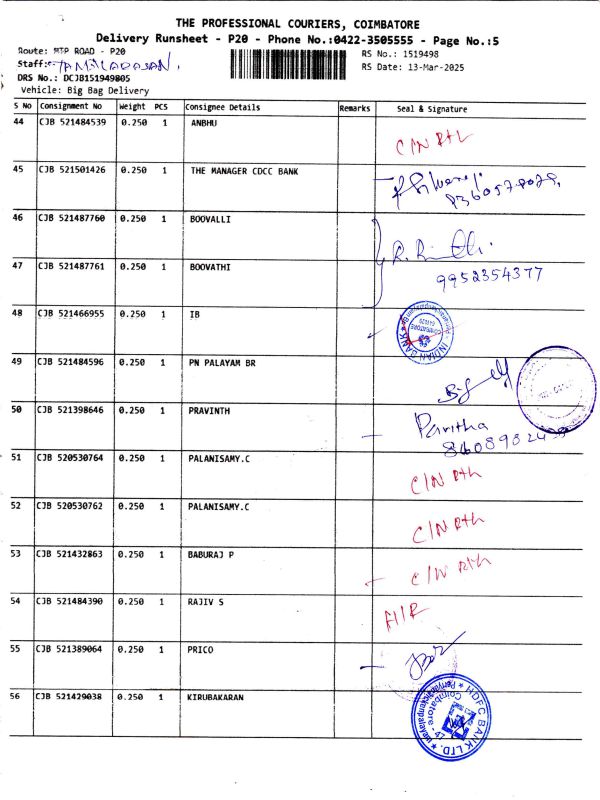 THE PROFESSIONAL COURIERS, COIMBATORE
Delivery Runsheet - P20 - Phone No.:0422-3505555 - Page No.:5
Route: MTP ROAD - P20 RS No.: 1519498
Staff: TAMILARASAN. RS Date: 13-Mar-2025
DRS No.: DCJB151949805
Vehicle: Big Bag Delivery
S No Consignment No Weight PCS Consignee Details Remarks Seal & Signature
44 CJB 521484539 0.250 1 ANBHU C/N Rth
45 CJB 521501426 0.250 1 THE MANAGER CDCC BANK
46 CJB 521487760 0.250 1 BOOVALLI
47 CJB 521487761 0.250 1 BOOVATHI 9952354377
48 CJB 521466955 0.250 1 IB INDIAN BANK COIMBATORE
49 CJB 521484596 0.250 1 PN PALAYAM BR
50 CJB 521398646 0.250 1 PRAVINTH Pavitha
51 CJB 520530764 0.250 1 PALANISAMY.C C/N Rth
52 CJB 520530762 0.250 1 PALANISAMY.C C/N Rth
53 CJB 521432863 0.250 1 BABURAJ P C/N Rth
54 CJB 521484390 0.250 1 RAJIV S
55 CJB 521389064 0.250 1 PRICO
56 CJB 521429038 0.250 1 KIRUBAKARAN HDFC BANK LTD. Coimbatore - 47